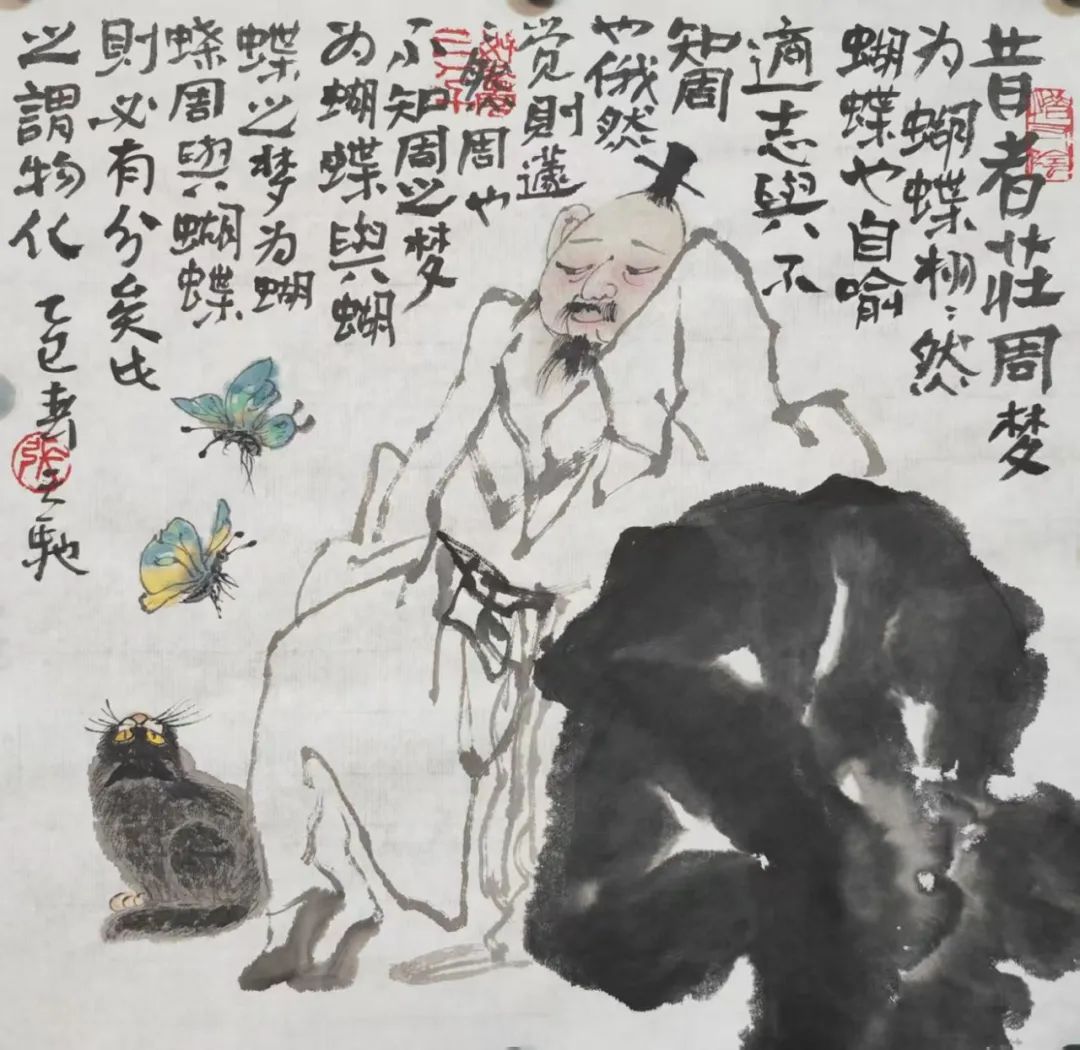 昔者莊周梦
为蝴蝶栩〻然
蝴蝶也自喻
適志與不
知周
也俄然
觉則蘧
〻然周也
不知周之梦
为蝴蝶與蝴
蝶之梦为蝴
蝶周與蝴蝶
則必有分矣此
之謂物化
乙巳春之馳
张